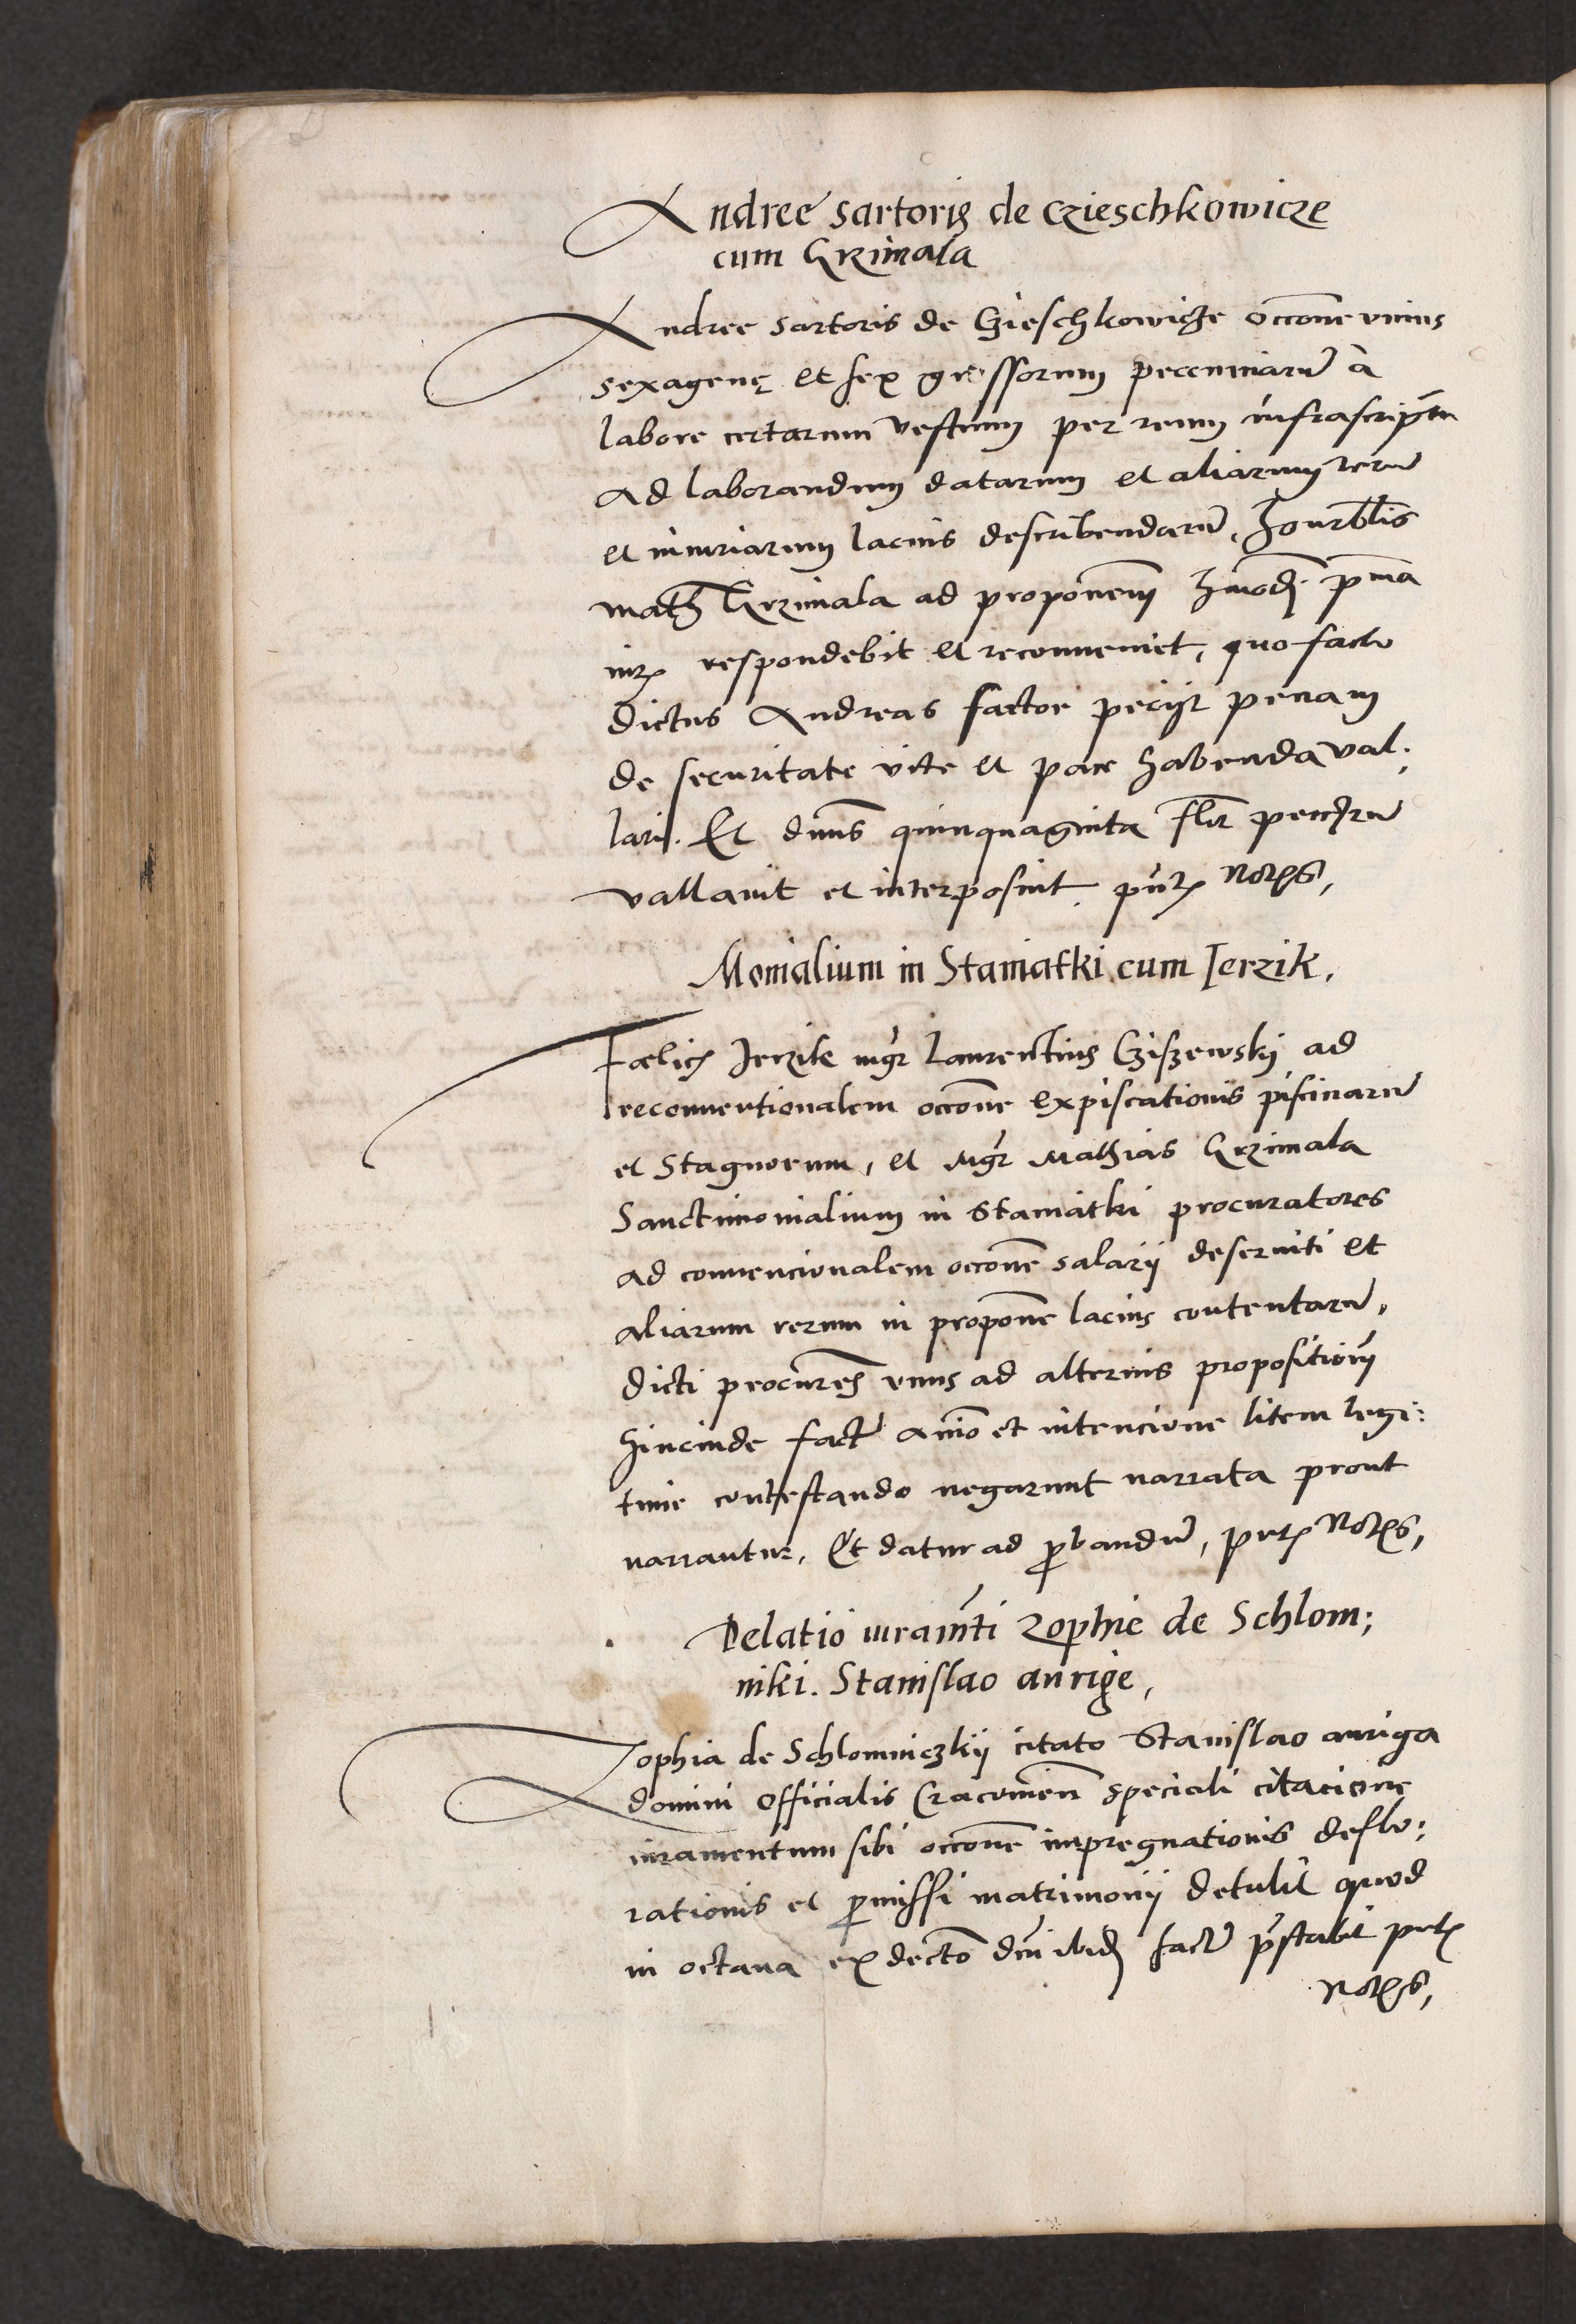 Andree sartoris de Czieschkowicze
cum Grzimala
Andree sartoris de Czieschkowicze occone unius
sexagenę et sex grossorum peccuniarũ à
labore certarum vestium per reum infrascriptũ
ad laborandum datarum et aliarum rerũ
et iniuriarum lacius describendarũ, Honrblis
Math Grzimala ad proponem hmodj
respondebit et reconueniet, quo facto
dictus Andreas factor peciit penam
de securitate vite et pace habenda val:
lari. Et dnus quinquaginta flor
vallauit et interposuit, pntz notis,
Monialium in Staniatki cum Jerzik,
Fœlicz Jerzik mgr Laurentius Cziszewskij ad
reconuentionalem occone expiscationis piscinarũ
et Stagnorum, et Mgr Mathias Grzimala
Sanctimonialium in Staniatki procuratores
ad conuencionalem occone salarij deseruiti et
aliarum rerum in propone lacius contentarũ,
dicti procures unus ad alterius propositiom
hincinde fact aio et intencione litem legi:
time contestando negarunt narrata prout
narrantur, Et datur ad pbandũ, pntz notis,
Delatio iuramti Zophie de Schlom:
niki. Stanislao aurige,
Zophia de Schlomniczkij citato Stanislao auriga
domini officialis Cracouien speciali citacione
iuramentum sibi occone impregnationis deflo:
rationis et pmissi matrimonij detulit quod
in octaua ex decto dni ibidj fact pstabit pntz
notis,